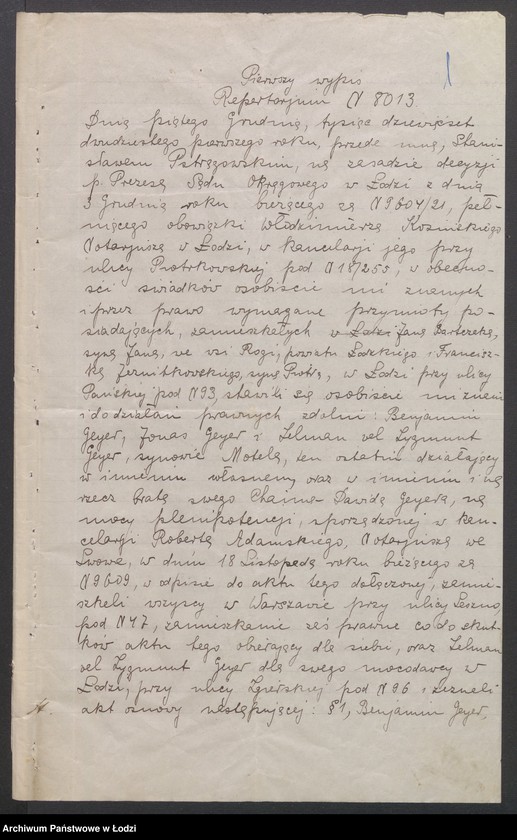 1
Pierwszy wypis
Repertorjum N 8013.
Dnia piątego Grudnia, tysiąc dziewięćset
dwudziestego pierwszego roku, przede mną, Stani-
sławem Pstrągowskim, na zasadzie decyzji
p. Prezesa Sądu Okręgowego w Łodzi z dnia
3 Grudnia roku bieżącego za N 9604/21, peł-
niącego obowiązki Włodzimierza Kosińskiego
Notarjusza w Łodzi, w kancelarji jego przy
ulicy Piotrkowskiej pod N 187/255, w obecno-
ści świadków osobiście mi znanych
i przez prawo wymagane przymioty po-
siadających, zamieszkałych w Łodzi Jana Bartczaka,
syna Jana, we wsi Rogi, powiatu Łódzkiego i Francisz-
ka Żernitkowskiego, syna Piotra, w Łodzi przy ulicy
Pańskiej pod N 93, stawili się osobiście mi znani
i do działań prawnych zdolni: Benjamin
Geyer, Jonas Geyer i Zelman vel Zygmunt
Geyer, synowie Motela, ten ostatni działający
w imieniu własnem, oraz w imieniu i na
rzecz brata swego Chaima Dawida Geyera, na
mocy plenipotencji, sporządzonej w kan-
celarji Roberta Adamskiego, Notarjusza we
Lwowie, w dniu 18 Listopada roku bieżącego za
N 9609, w odpisie do aktu tego dołączonej, zamie-
szkali wszyscy w Warszawie przy ulicy Leszno,
pod N 47, zamieszkanie zaś prawne co do skut-
ków aktu tego obierający dla siebie, oraz Zelman
vel Zygmunt Geyer dla swego mocodawcy w
Łodzi, przy ulicy Zgierskiej pod N 96 i zeznali
akt osnowy następującej: § 1, Benjamin Geyer,
Archiwum Państwowe w Łodzi